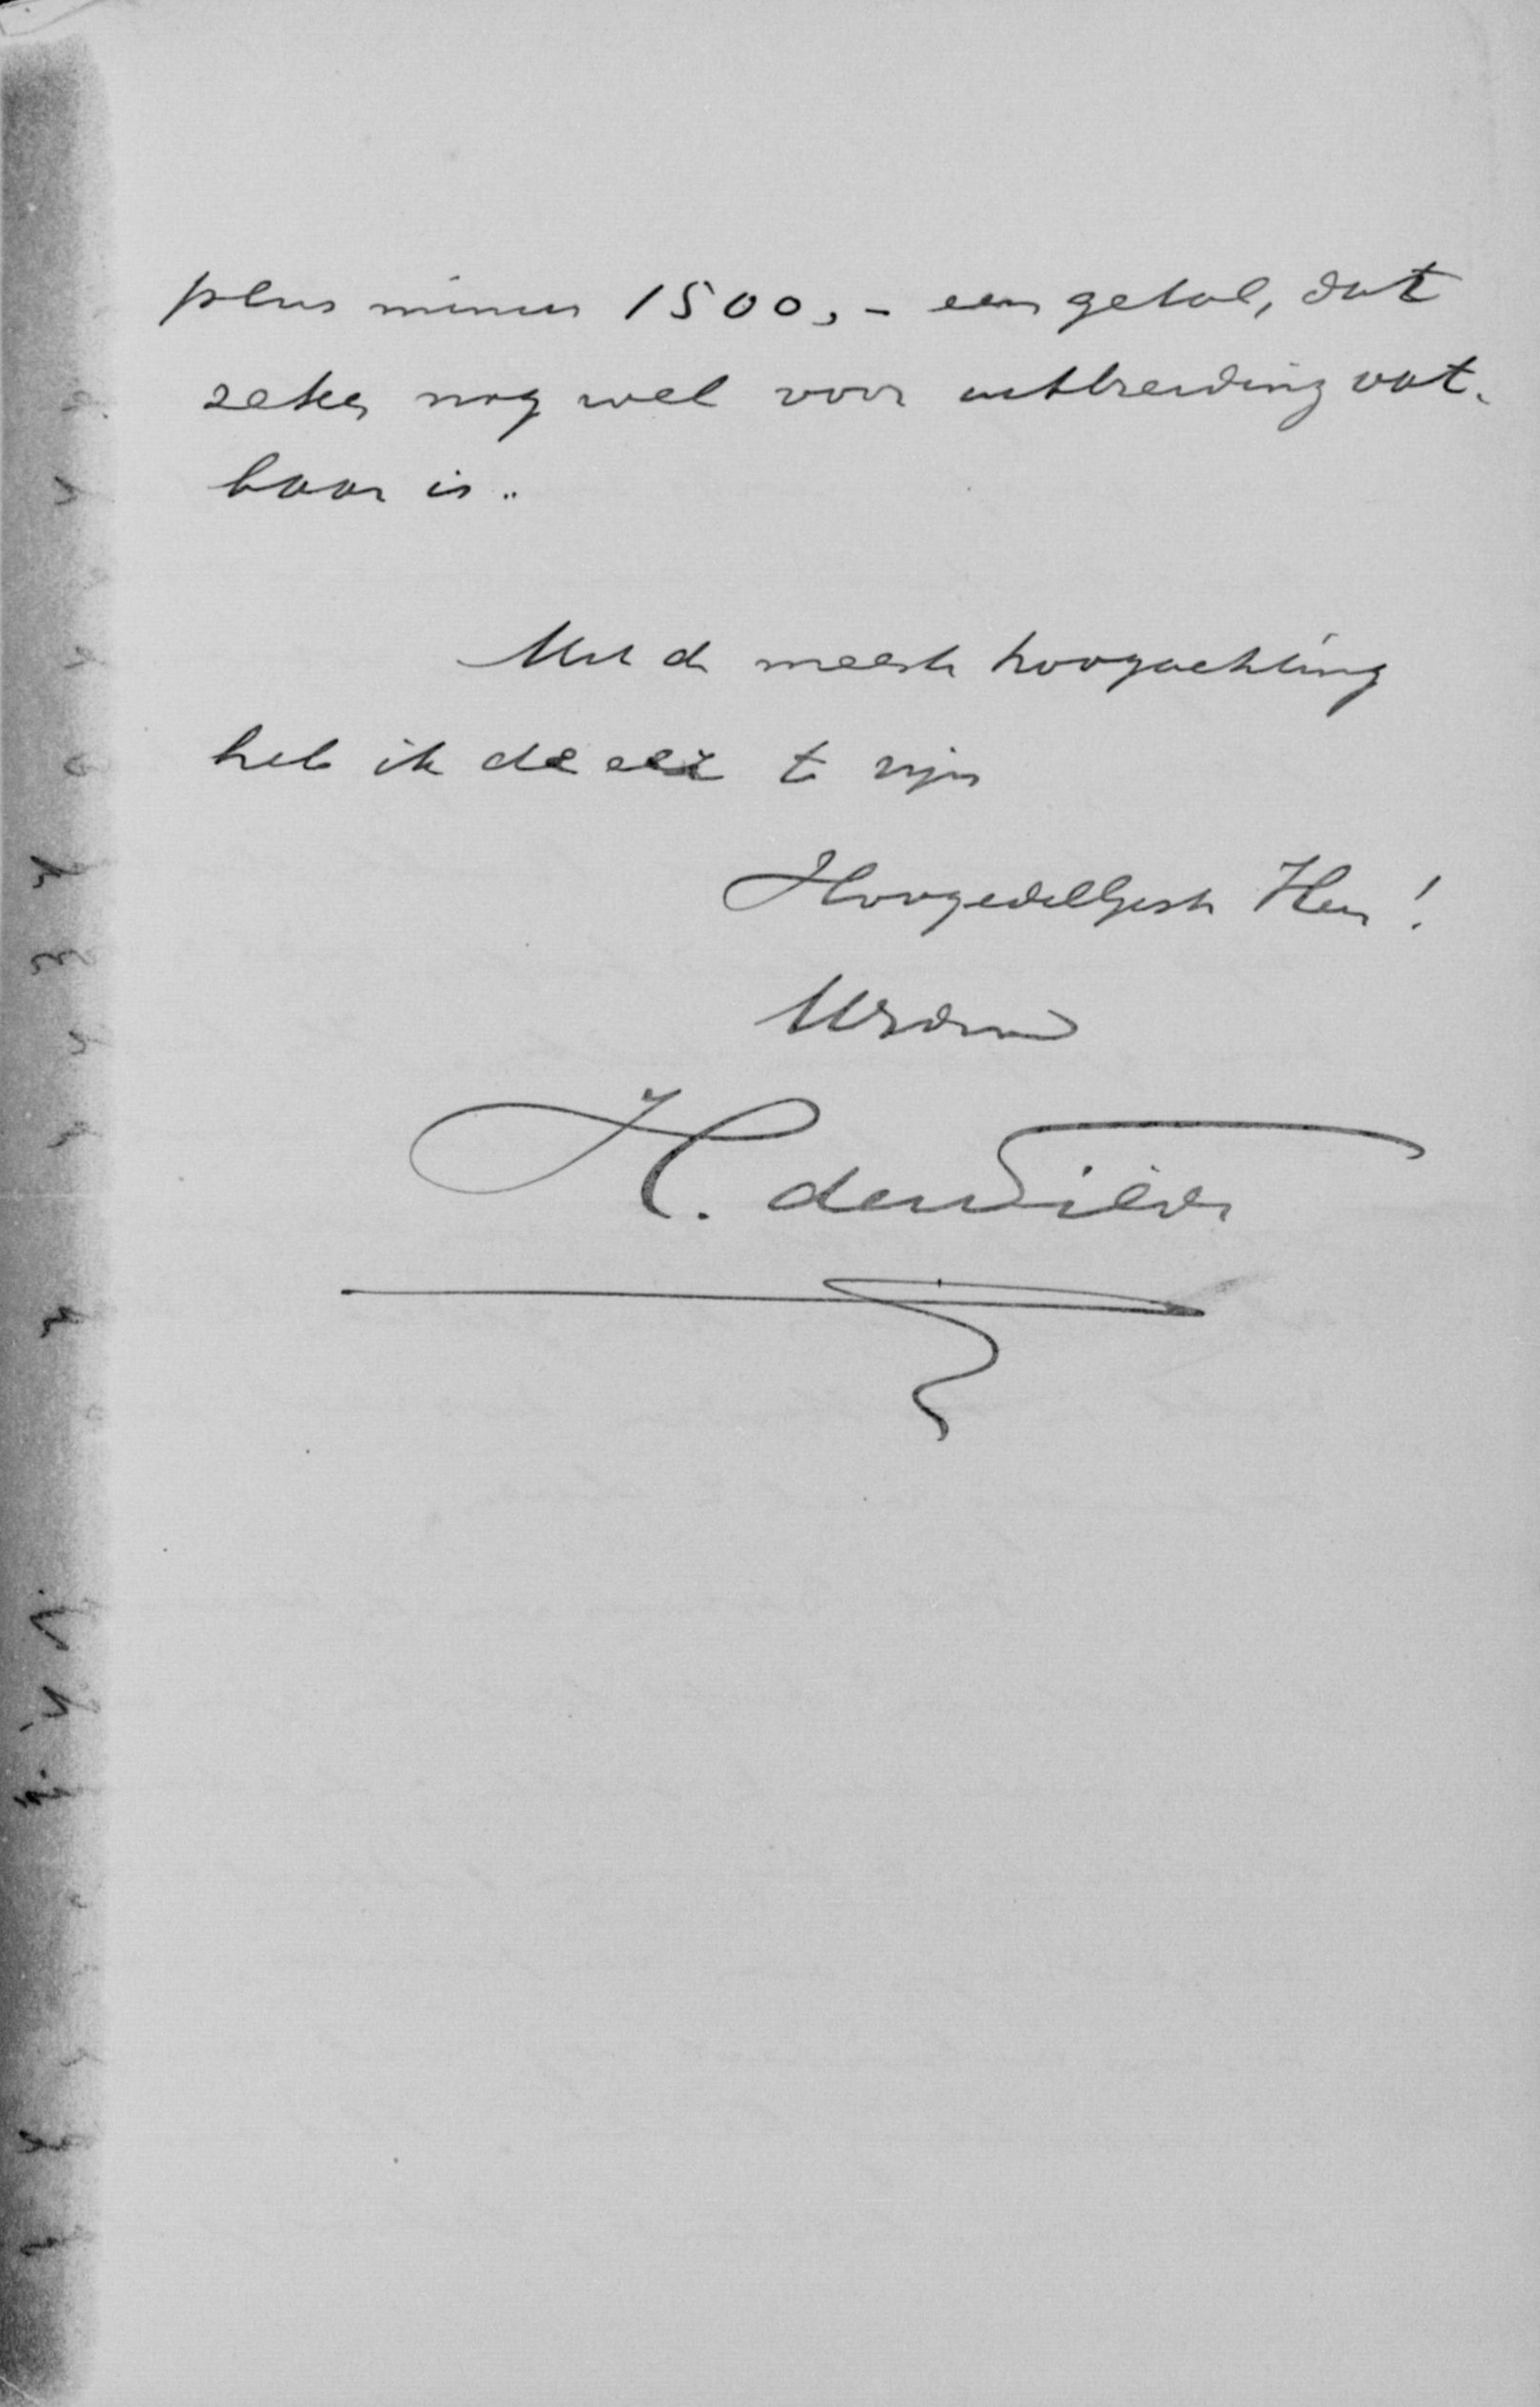 plus minus 1500,- een getal, dat
zeker nog wel voor uitbreiding vat-
baar is..
Met de meeste hoogachting
heb ik de eer te zijn
HoogedelGestr Heer!
UEdDw
H. de Wilde